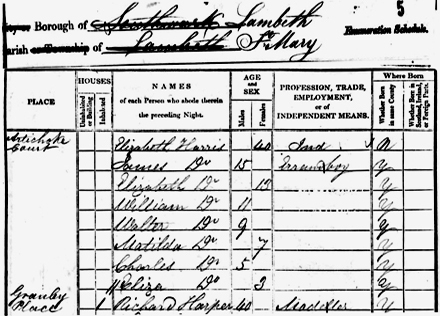 5
City or Borough of Southwark Lambeth
Enumeration Schedule.
Parish or Township of Lambeth St Mary
PLACE
HOUSES
Uninhabited or Building
Inhabited
NAMES
of each Person who abode therein the preceding Night.
AGE and SEX
Males
Females
PROFESSION, TRADE, EMPLOYMENT, or of INDEPENDENT MEANS.
Where Born
Whether Born in same County
Whether Born in Scotland, Ireland, or Foreign Parts
Artichoke Court Elizabeth Harris 40 Ind N
James Do 15 Errand boy Y
Elizabeth Do 12 Y
William Do 11 Y
Walter Do 9 Y
Matilda Do 7 Y
Charles Do 5 Y
Eliza Do 3 Y
Granby Place 1 Richard Harper 40 Y